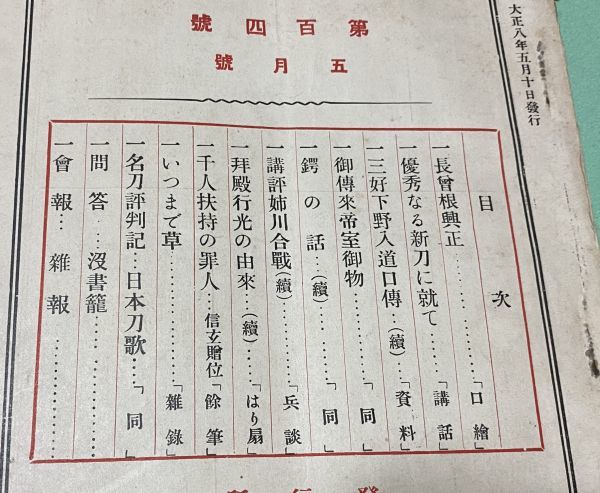 大正八年五月十日發行
第百四號
五月號
目次
一長曾根興正………「口繪」
一優秀なる新刀に就て…「講話」
一三好下野入道口傳…(續)…「資料」
一御傳來帝室御物………「同」
一鍔の話…(續)………「同」
一講評姉川合戰(續)…「兵談」
一拜殿行光の由來…(續)「はり扇」
一千人扶持の罪人…信玄贈位「餘筆」
一いつまで草………「雜錄」
一名刀評判記…日本刀歌…「同」
一問答…沒書籠………
一會報…雜報………